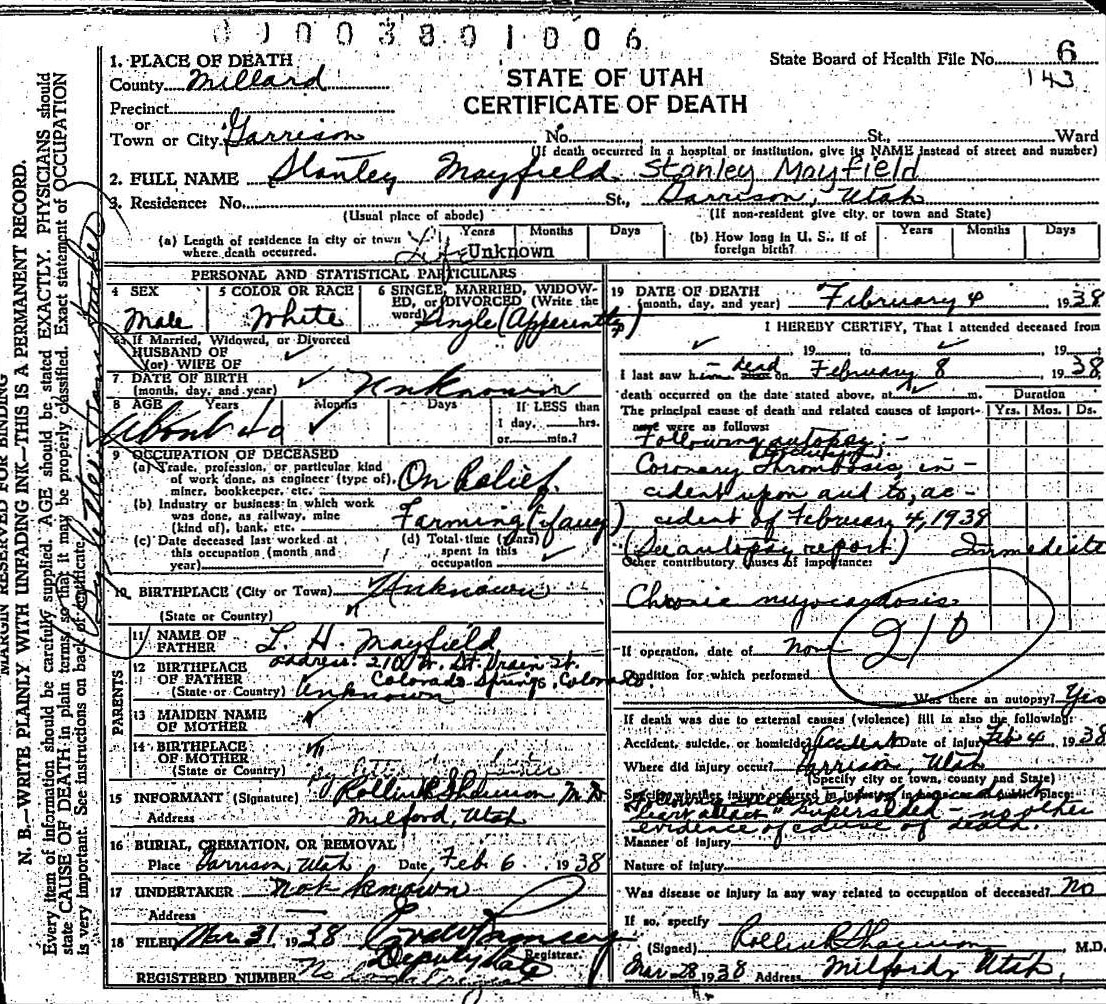 0 0 0 0 3 8 0 1 0 0 6
1. PLACE OF DEATH
County Millard
Precinct
or
Town or City Garrison
STATE OF UTAH
CERTIFICATE OF DEATH
State Board of Health File No. 6
143
No. St., Ward
(If death occurred in a hospital or institution, give its NAME instead of street and number)
2. FULL NAME Stanley Mayfield Stanley Mayfield
3. Residence: No. St., Garrison, Utah
(Usual place of abode) (If non-resident give city, or town and State)
(a) Length of residence in city or town where death occurred. Life Unknown Years Months Days
(b) How long in U. S., if of foreign birth? Years Months Days
PERSONAL AND STATISTICAL PARTICULARS
4 SEX Male
5 COLOR OR RACE White
6 SINGLE, MARRIED, WIDOWED, or DIVORCED (Write the word) Single (Apparently)
If Married, Widowed, or Divorced
HUSBAND OF
(or) WIFE OF
7. DATE OF BIRTH
(month, day, and year) Unknown
8 AGE Years Months Days
About 40
If LESS than
1 day, hrs.
or min.?
9 OCCUPATION OF DECEASED
(a) Trade, profession, or particular kind
of work done, as engineer (type of),
miner, bookkeeper, etc. On Relief
(b) Industry or business in which work
was done, as railway, mine
(kind of), bank, etc. Farming (if any)
(c) Date deceased last worked at
this occupation (month and
year)
(d) Total time (years)
spent in this
occupation
10 BIRTHPLACE (City or Town) Unknown
(State or Country)
PARENTS
11 NAME OF
FATHER L. H. Mayfield
address: 210
Colorado Springs, Colorado.
12 BIRTHPLACE
OF FATHER
(State or Country) Unknown
13 MAIDEN NAME
OF MOTHER
14 BIRTHPLACE
OF MOTHER
(State or Country)
15 INFORMANT (Signature) M. D.
Address Milford, Utah
16 BURIAL, CREMATION, OR REMOVAL
Place Garrison, Utah Date Feb 6 1938
17 UNDERTAKER not known
Address
18 FILED Mar. 31 1938
Registrar.
Deputy State
REGISTERED NUMBER No
19 DATE OF DEATH
(month, day, and year) February 4 1938
I HEREBY CERTIFY, That I attended deceased from
, 19 to , 19
I last saw him dead on February 8 1938
death occurred on the date stated above, at m.
The principal cause of death and related causes of importance were as follows:
Duration
Yrs. Mos. Ds.
Following autopsy:-
Coronary Thrombosis, in-
cident upon and to, ac-
cident of February 4, 1938
(See autopsy report) Immediate
Other contributory causes of importance:
Chronic myocardosis
210
If operation, date of None
Condition for which performed
Was there an autopsy? Yes
If death was due to external causes (violence) fill in also the following:
Accident, suicide, or homicide? Accident Date of injury Feb 4, 1938
Where did injury occur? Garrison Utah
(Specify city or town, county and State)
Specify whether injury occurred in industry, in home, or in public place:
"heart attack" superseded - no other
evidence of cause of death.
Manner of injury
Nature of injury
Was disease or injury in any way related to occupation of deceased? No
If so, specify
(Signed) M.D.
Mar 28 1938 Address Milford, Utah,
MARGIN RESERVED FOR BINDING
N. B.—WRITE PLAINLY WITH UNFADING INK—THIS IS A PERMANENT RECORD.
Every item of information should be carefully supplied. AGE should be stated EXACTLY. PHYSICIANS should
state CAUSE OF DEATH in plain terms, so that it may be properly classified. Exact statement of OCCUPATION
is very important. See instructions on back of certificate.